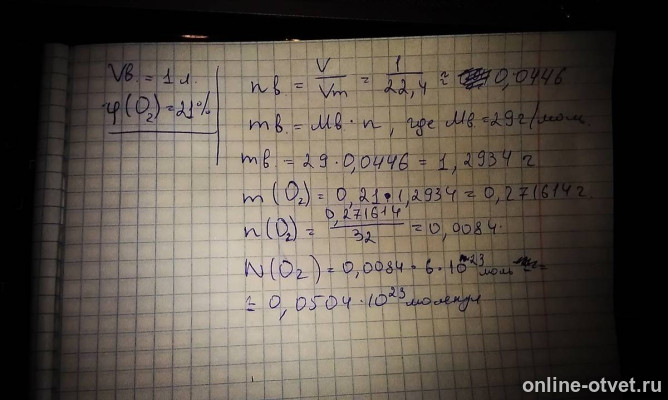 Vв. = 1 л.
φ(O₂) = 21%
nв = V/Vm = 1/22,4 ≈ 0,0446
mв. = Mв · n, где Mв = 29 г/моль.
mв = 29 · 0,0446 = 1,2934 г
m(O₂) = 0,21 · 1,2934 = 0,271614 г.
n(O₂) = 0,271614/32 = 0,0084.
N(O₂) = 0,0084 · 6 · 10²³ моль
= 0,0504 · 10²³ молекул
online-otvet.ru